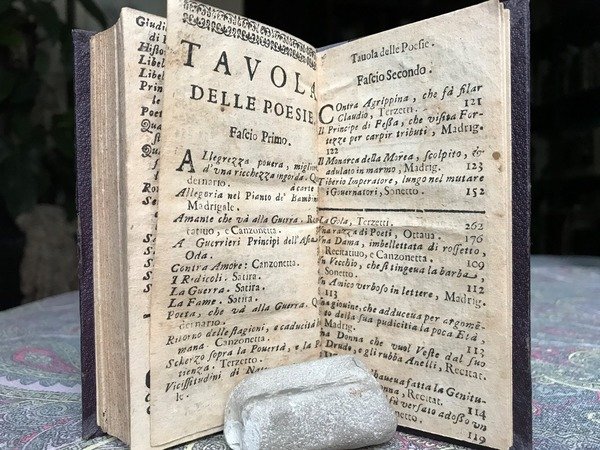 Giudi
di
Hist
Libel
Libel
Prin
le
Poet
Qua
st
Ro
Se
S
TAVOLA
DELLE POESIE
Fascio Primo.
ALlegrezza pouera, miglio
d'una ricchezza ingorda. Qu
dernario.
Allegoria nel Pianto de' Bambin
Madrigale.
Amante che và alla Guerra. Rec
tatiuo, e Canzonetta.
A Guerrieri Principi dell'Asia
Oda.
Contra Amore: Canzonetta.
I Ridicoli. Satira.
La Guerra. Satira.
La Fame. Satira.
Poeta, che và alla Guerra. Qu
dernario.
Ritorno delle stagioni, e caducità
mana Canzonetta.
Scherzo sopra la Pouertà, e la P
tienza. Terzetto.
Vicissitudini di Na
le.
Tauola delle Poesie.
Fascio Secondo.
COntra Agrippina, che fà filar
Claudio, Terzetti. 121
Il Principe di Festa, che visita For-
tezze per carpir tributi, Madrig.
122
Il Monarca della Mirea, scolpito, &
adulato in marmo, Madrig. 123
Tiberio Imperatore, lungo nel mutare
i Gouernatori, Sonetto. 152
La Gola, Terzetti. 262
na razza di Poeti, Ottaua. 176
na Dama, imbellettata di rossetto,
Recitatiuo, e Canzonetta. 109
n Vecchio, che si tingeua la barba,
Sonetto. 112
n Amico verboso in lettere, Madrig.
113
na giouine, che adduceua per argomē-
to della sua pudicitia la poca Età,
Madrig. 113
na Donna che vuol Veste dal suo
Drudo, e gli rubba Anelli, Recitat.
haueua fatta la Genitu-
Recitat. 114
versato adosso un
onetto. 119